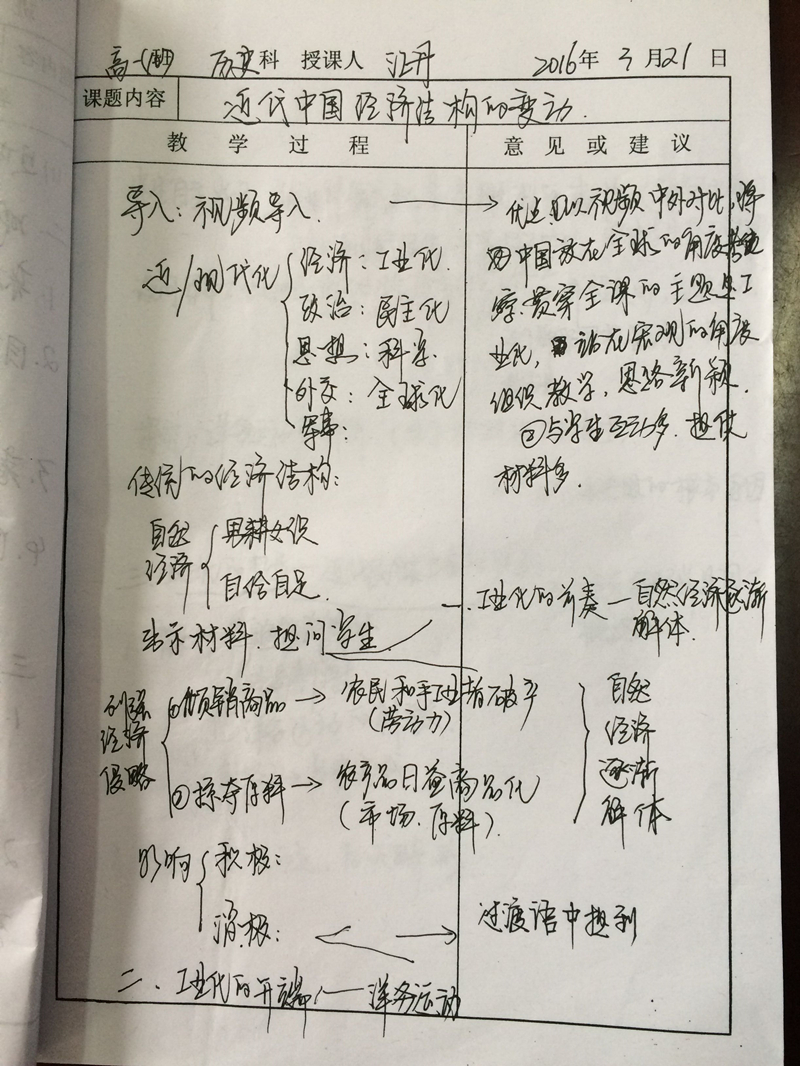 高一 历史科 授课人 江丹 2016年3月21日
课题内容 近代中国经济结构的变动.
教学过程 意见或建议
导入：视频导入. → 优点：①以视频中外对比，将
中国放在全球的角度考虑
近/现代化 经济：工业化.
政治：民主化
思想：科学.
外交：全球化
军事：
贯穿全课的主题是工
业化，站在宏观的角度
组织教学，思路新颖.
②与学生互动多. 提供
材料多.
传统的经济结构：
自然经济 男耕女织
自给自足.
一. 工业化的前奏—自然经济逐渐
解体.
出示材料. 提问学生
列强经济侵略 ①倾销商品 → 农民和手工业者破产
(劳动力)
②掠夺原料 → 农产品日益商品化
(市场. 原料).
自然
经济
逐渐
解体
影响 积极：
消极： → 过渡语中提到
二. 工业化的开端 —— 洋务运动